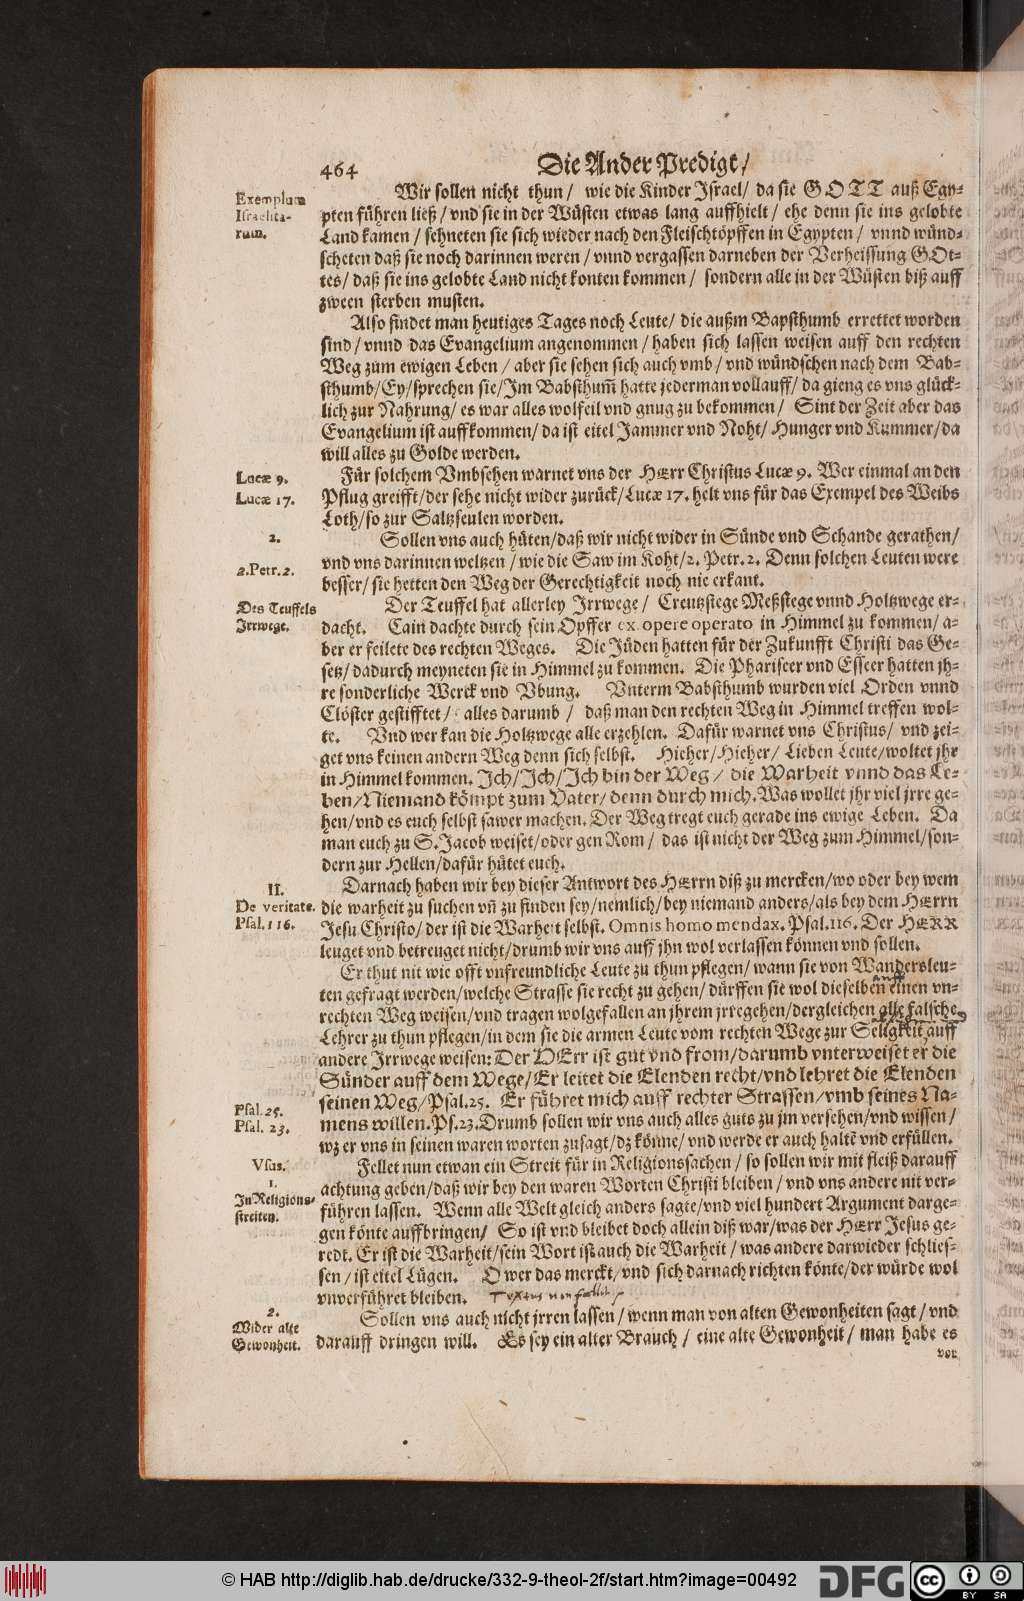 464 Die Ander Predigt/
Exemplum
Israelita-
rum.
Wir sollen nicht thun / wie die Kinder Jsrael / da sie GOTT auß Egy-
pten führen ließ / vnd sie in der Wüsten etwas lang auffhielt / ehe denn sie ins gelobte
Land kamen / sehneten sie sich wieder nach den Fleischtöpffen in Egypten / vnnd wünd-
scheten daß sie noch darinnen weren / vnnd vergassen darneben der Verheissung GOt-
tes / daß sie ins gelobte Land nicht konten kommen / sondern alle in der Wüsten biß auff
zween sterben musten.
Also findet man heutiges Tages noch Leute / die außm Bapsthumb errettet worden
sind / vnnd das Evangelium angenommen / haben sich lassen weisen auff den rechten
Weg zum ewigen Leben / aber sie sehen sich auch vmb / vnd wündschen nach dem Bab-
sthumb / Ey / sprechen sie / Jm Babsthum̃ hatte jederman vollauff / da gieng es vns glück-
lich zur Nahrung / es war alles wolfeil vnd gnug zu bekommen / Sint der Zeit aber das
Evangelium ist auffkommen / da ist eitel Jammer vnd Noht / Hunger vnd Kummer / da
will alles zu Golde werden.
Lucæ 9.
Lucæ 17.
Für solchem Vmbsehen warnet vns der HErr Christus Lucæ 9. Wer einmal an den
Pflug greifft / der sehe nicht wider zurück / Lucæ 17. helt vns für das Exempel des Weibs
Loth / so zur Saltzseulen worden.
2.
2.Petr.2.
Sollen vns auch hüten / daß wir nicht wider in Sünde vnd Schande gerathen /
vnd vns darinnen weltzen / wie die Saw im Koht / 2. Petr. 2. Denn solchen Leuten were
besser / sie hetten den Weg der Gerechtigkeit noch nie erkant.
Des Teuffels
Jrrwege.
Der Teuffel hat allerley Jrrwege / Creutzstege Meßstege vnnd Holtzwege er-
dacht. Cain dachte durch sein Opffer ex opere operato in Himmel zu kommen / a-
ber er feilete des rechten Weges. Die Jüden hatten für der Zukunfft Christi das Ge-
setz / dadurch meyneten sie in Himmel zu kommen. Die Phariseer vnd Esseer hatten jh-
re sonderliche Werck vnd Vbung. Vnterm Babsthumb wurden viel Orden vnnd
Clöster gestifftet / alles darumb / daß man den rechten Weg in Himmel treffen wol-
te. Vnd wer kan die Holtzwege alle erzehlen. Dafür warnet vns Christus / vnd zei-
get vns keinen andern Weg denn sich selbst. Hieher / Hieher / Lieben Leute / woltet jhr
in Himmel kommen. Jch / Jch / Jch bin der Weg / die Warheit vnnd das Le-
ben / Niemand kömpt zum Vater / denn durch mich. Was wollet jhr viel jrre ge-
hen / vnd es euch selbst sawer machen. Der Weg tregt euch gerade ins ewige Leben. Da
man euch zu S. Jacob weiset / oder gen Rom / das ist nicht der Weg zum Himmel / son-
dern zur Hellen / dafür hütet euch.
II.
De veritate.
Psal.116.
Darnach haben wir bey dieser Antwort des HErrn diß zu mercken / wo oder bey wem
die warheit zu suchen vñ zu finden sey / nemlich / bey niemand anders / als bey dem HErrn
Jesu Christo / der ist die Warheit selbst. Omnis homo mendax. Psal.116. Der HERR
leuget vnd betreuget nicht / drumb wir vns auff jhn wol verlassen können vnd sollen.
Er thut nit wie offt vnfreundliche Leute zu thun pflegen / wann sie von Wandersleu-
ten gefragt werden / welche Strasse sie recht zu gehen / dürffen sie wol dieselben einen vn-
rechten Weg weisen / vnd tragen wolgefallen an jhrem jrregehen / dergleichen alle falsche
Lehrer zu thun pflegen / in dem sie die armen Leute vom rechten Wege zur Seligkeit auff
andere Jrrwege weisen: Der HErr ist gut vnd from / darumb vnterweiset er die
Sünder auff dem Wege / Er leitet die Elenden recht / vnd lehret die Elenden
seinen Weg / Psal. 25. Er führet mich auff rechter Strassen / vmb seines Na-
mens willen. Ps. 23. Drumb sollen wir vns auch alles guts zu jm versehen / vnd wissen /
wz er vns in seinen waren worten zusagt / dz könne / vnd werde er auch haltẽ vnd erfüllen.
Psal. 25.
Psal. 23.
Vsus.
1.
Jn Religions-
streiten.
Fellet nun etwan ein Streit für in Religionssachen / so sollen wir mit fleiß darauff
achtung geben / daß wir bey den waren Worten Christi bleiben / vnd vns andere nit ver-
führen lassen. Wenn alle Welt gleich anders sagte / vnd viel hundert Argument darge-
gen könte auffbringen / So ist vnd bleibet doch allein diß war / was der HErr Jesus ge-
redt. Er ist die Warheit / sein Wort ist auch die Warheit / was andere darwieder schlies-
sen / ist eitel Lügen. O wer das merckt / vnd sich darnach richten könte / der würde wol
vnverführet bleiben.
2.
Wider alte
Gewonheit.
Sollen vns auch nicht jrren lassen / wenn man von alten Gewonheiten sagt / vnd
darauff dringen will. Es sey ein alter Brauch / eine alte Gewonheit / man habe es
vor
© HAB http://diglib.hab.de/drucke/332-9-theol-2f/start.htm?image=00492
DFG
cc BY SA